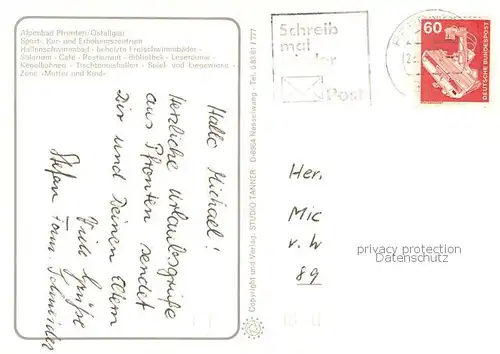 Alpenbad Pfronten/Ostallgäu
Sport-, Kur- und Erholungszentrum
Hallenschwimmbad - beheizte Freischwimmbäder -
Solarium - Café - Restaurant - Bibliothek - Leseräume -
Kegelbahnen - Tischtennishallen - Spiel- und Liegewiese -
Zone »Mutter und Kind«
Hallo Michael!
Herzliche Urlaubsgrüße
aus Pfronten sendet
Dir und Deinen Eltern
Viele Grüße
Stefan Schneider
Copyright und Verlag: STUDIO TANNER · D-8964 Nesselwang · Tel. 0 83 61 / 777
Schreib
mal
wieder
Post
60
DEUTSCHE BUNDESPOST
Her
Mic
v. W
89
privacy protection
Datenschutz